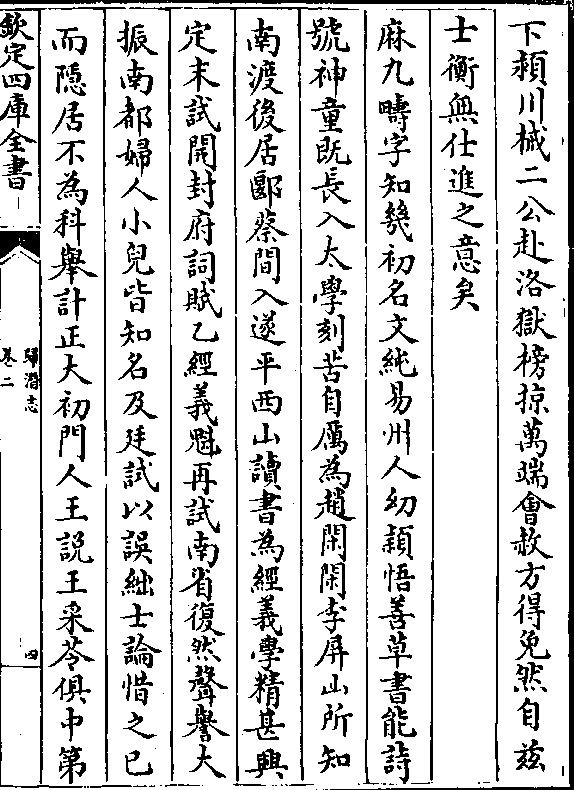 下潁川械二公赴洛獄榜掠萬端會赦方得免然自兹
士衡無仕進之意矣
麻九疇字知幾初名文純易州人幼穎悟善草書能詩
號神童既長入太學刻苦自厲為趙閑閑李屏山所知
南渡後居郾蔡間入遂平西山讀書為經義學精甚興
定末試開封府詞賦乙經義魁再試南省復然聲譽大
振南都婦人小兒皆知名及廷試以誤絀士論惜之已
而隱居不為科舉計正大初門人王說王采苓俱中第
欽定四庫全書
歸潛志
卷二
四